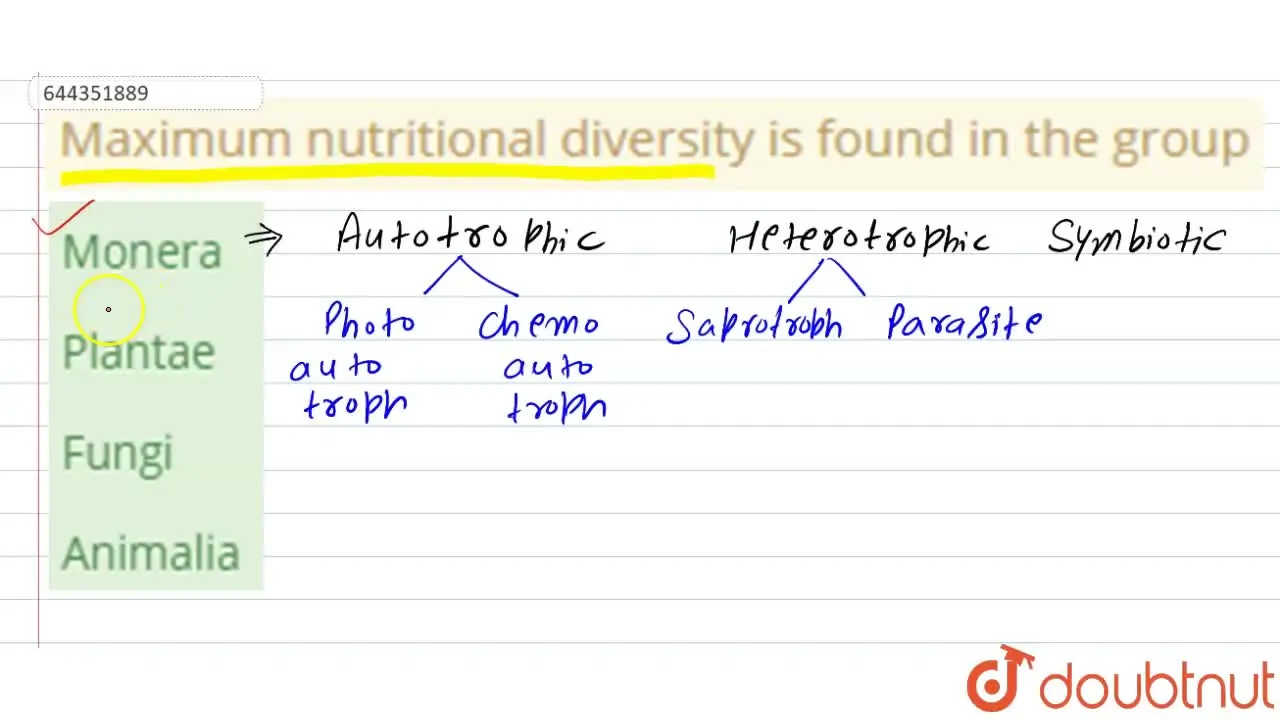 644351889
Maximum nutritional diversity is found in the group
Monera ⇒ Autotrophic Heterotrophic Symbiotic
Photo auto troph
Chemo auto troph
Saprotroph Parasite
Plantae
Fungi
Animalia
doubtnut